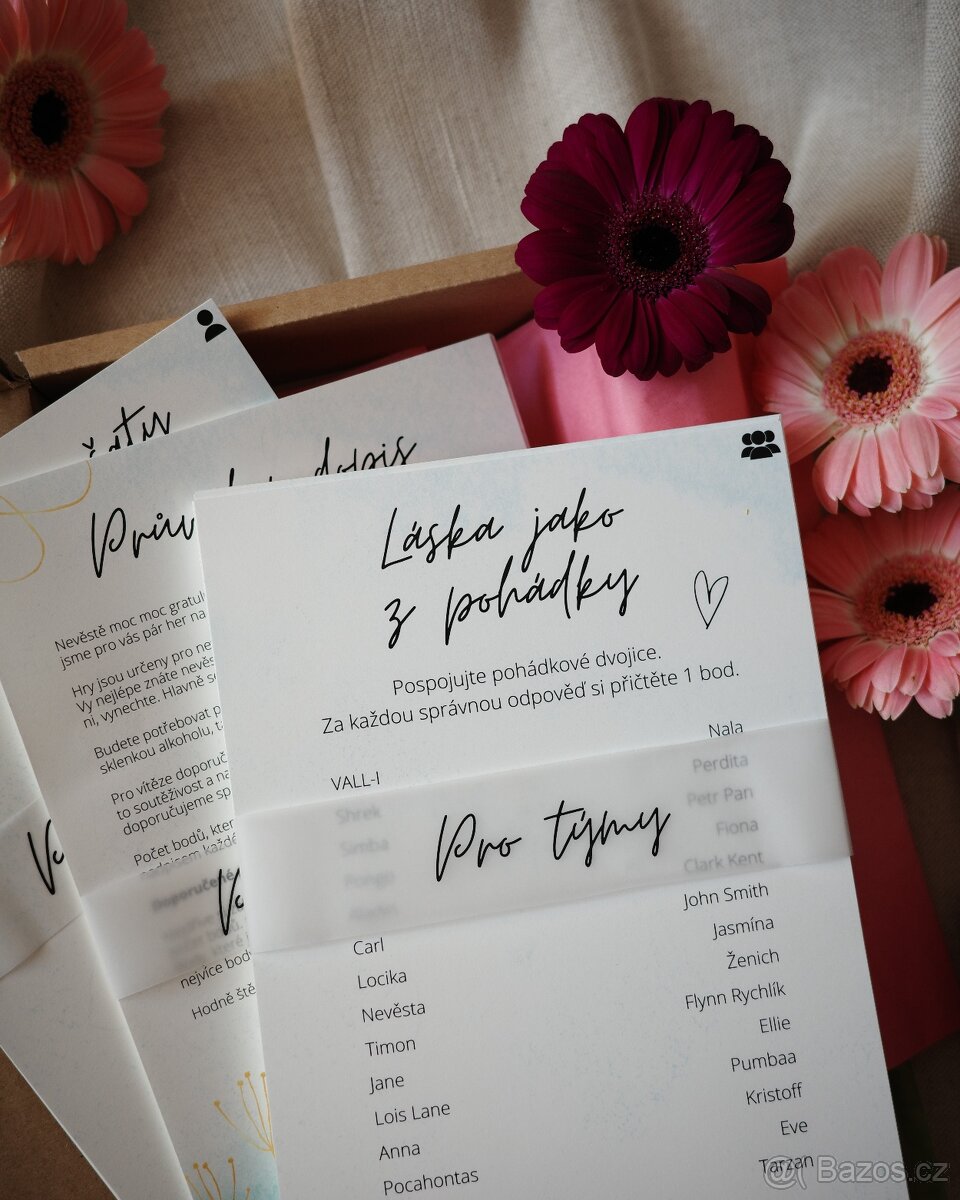 Prův
dopis
Nevěstě moc moc gratul
jsme pro vás pár her na
Hry jsou určeny pro ne
Vy nejlépe znáte nevěs
ni, vynechte. Hlavně s
Budete potřebovat p
sklenkou alkoholu, t
Pro vítěze doporuč
to soutěživost a na
doporučujeme sp
Počet bodů, kter
Doporučené
nejvíce bod
Hodně ště
Láska jako
z pohádky
Pospojujte pohádkové dvojice.
Za každou správnou odpověď si přičtěte 1 bod.
VALL-I
Shrek
Simba
Pongo
Carl
Locika
Nevěsta
Timon
Jane
Lois Lane
Anna
Pocahontas
Pro týmy
Nala
Perdita
Petr Pan
Fiona
Clark Kent
John Smith
Jasmína
Ženich
Flynn Rychlík
Ellie
Pumbaa
Kristoff
Eve
Tarzan
Bazos.cz